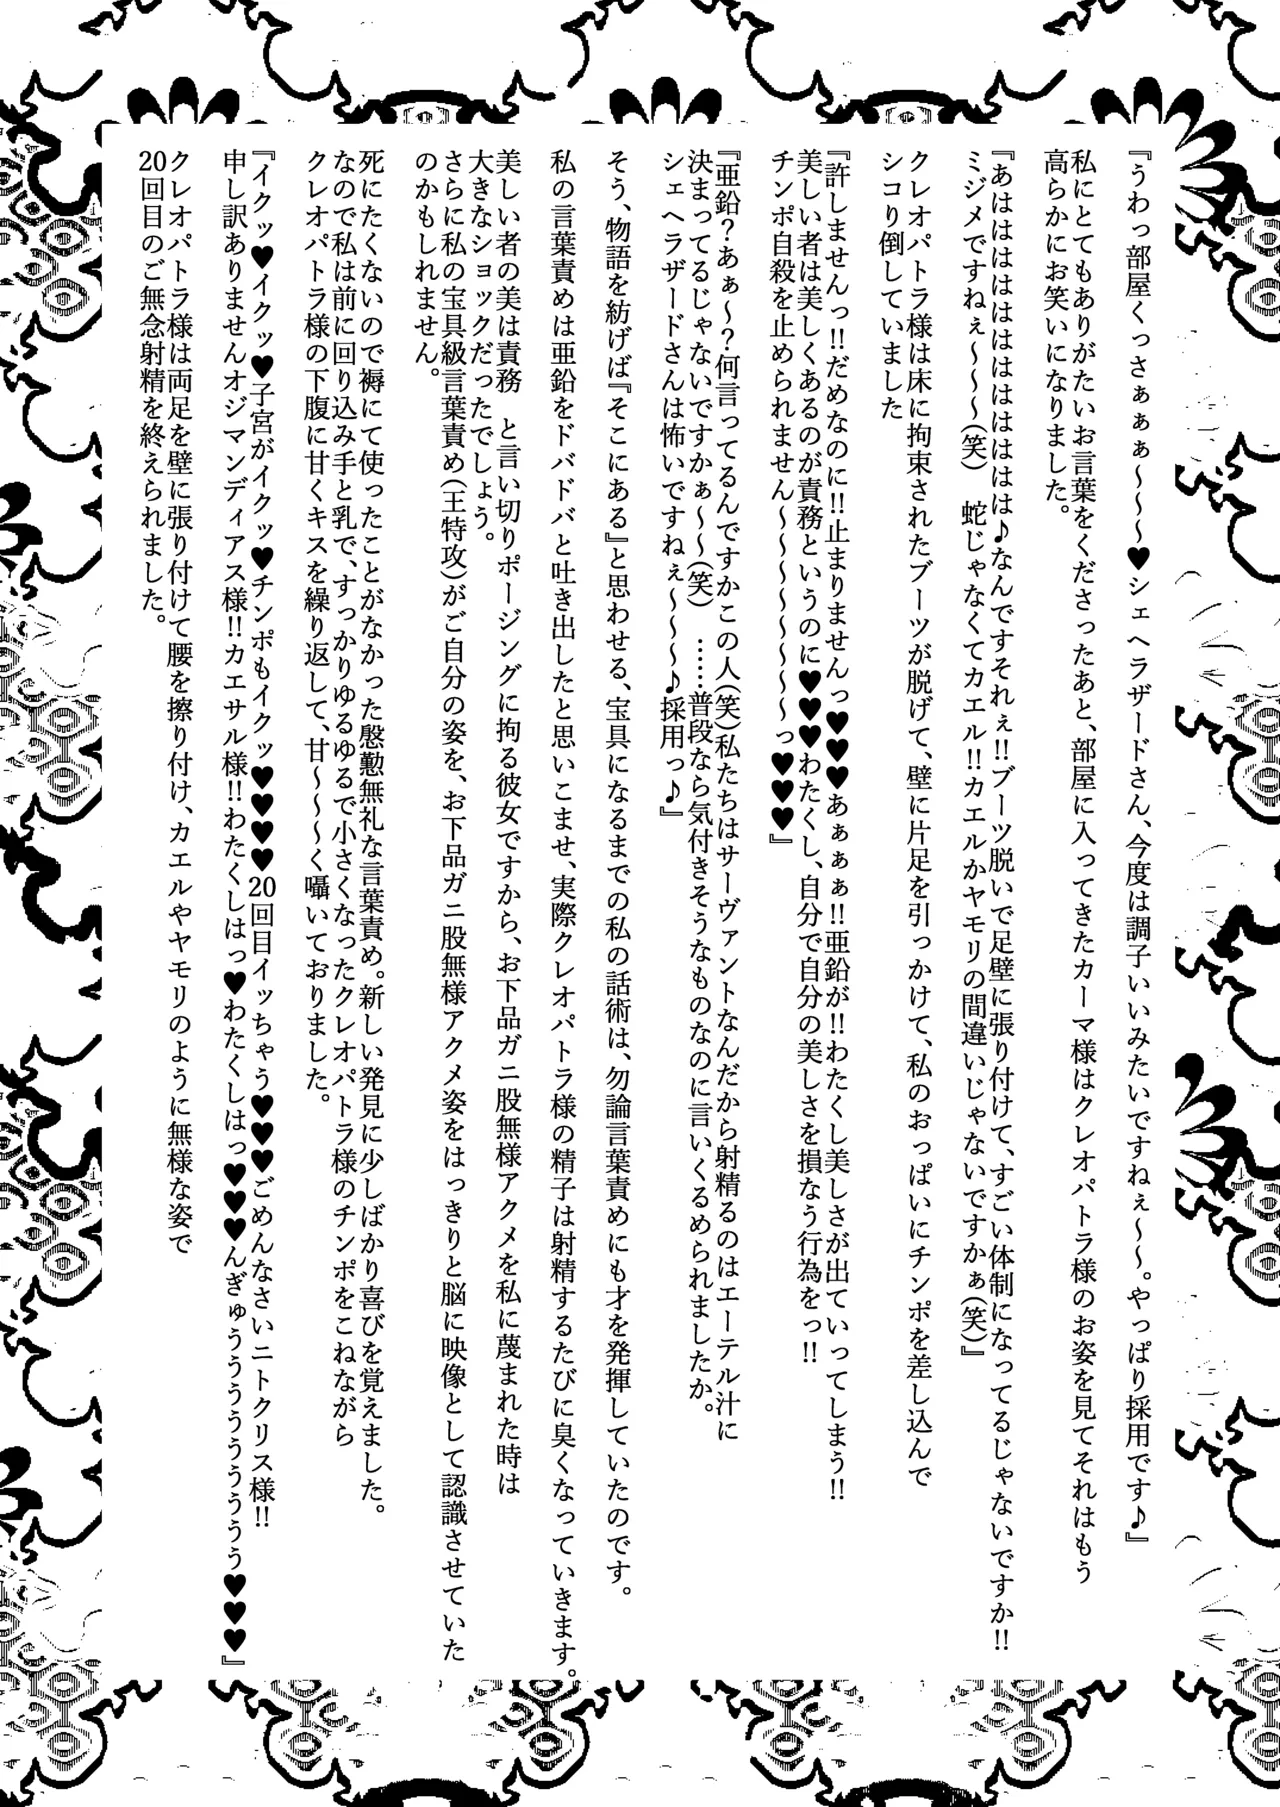 『うわっ部屋くっさぁぁぁ～～～♥シェヘラザードさん、今度は調子いいみたいですねぇ～～。やっぱり採用です♪』
私にとてもありがたいお言葉をくださったあと、部屋に入ってきたカーマ様はクレオパトラ様のお姿を見てそれはもう
高らかにお笑いになりました。
『あはははははははははははははは♪なんですそれぇ!!ブーツ脱いで足壁に張り付けて、すごい体制になってるじゃないですか!!
ミジメですねぇ～～～～(笑)　蛇じゃなくてカエル!!カエルかヤモリの間違いじゃないですかぁ(笑)』
クレオパトラ様は床に拘束されたブーツが脱げて、壁に片足を引っかけて、私のおっぱいにチンポを差し込んで
シコり倒していました
『許しませんっ!!だめなのに!!止まりませんっ♥♥♥あぁぁぁ!!亜鉛が!!わたくし美しさが出ていってしまう!!
美しい者は美しくあるのが責務というのに♥♥♥♥わたくし、自分で自分の美しさを損なう行為をっ!!
チンポ自殺を止められません～～～～～～～～っ♥♥♥』
『亜鉛?あぁ～?何言ってるんですかこの人(笑)私たちはサーヴァントなんだから射精るのはエーテル汁に
決まってるじゃないですかぁ～～(笑)　……普段なら気付きそうなものなのに言いくるめられましたか。
シェヘラザードさんは怖いですねぇ～～～♪採用っ♪』
そう、物語を紡げば『そこにある』と思わせる、宝具になるまでの私の話術は、勿論言葉責めにも才を発揮していたのです。
私の言葉責めは亜鉛をドバドバと吐き出したと思いこませ、実際クレオパトラ様の精子は射精するたびに臭くなっていきます。
美しい者の美は責務　と言い切りポージングに拘る彼女ですから、お下品ガニ股無様アクメを私に蔑まれた時は
大きなショックだったでしょう。
さらに私の宝具級言葉責め(王特攻)がご自分の姿を、お下品ガニ股無様アクメ姿をはっきりと脳に映像として認識させていた
のかもしれません。
死にたくないので褥にて使ったことがなかった慇懃無礼な言葉責め。新しい発見に少しばかり喜びを覚えました。
なので私は前に回り込み手と乳で、すっかりゆるゆるで小さくなったクレオパトラ様のチンポをこねながら
クレオパトラ様の下腹に甘くキスを繰り返して、甘～～～く囁いておりました。
『イクッ♥イクッ♥子宮がイクッ♥チンポもイクッ♥♥♥♥♥20回目イッちゃう♥♥♥♥ごめんなさいニトクリス様!!
申し訳ありませんオジマンディアス様!!カエサル様!!わたくしはっ♥わたくしはっ♥♥♥♥んぎゅううううううううう♥♥♥』
クレオパトラ様は両足を壁に張り付けて腰を擦り付け、カエルやヤモリのように無様な姿で
20回目のご無念射精を終えられました。